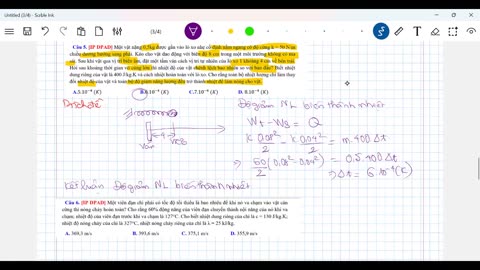 Untitled (3/4) - Scrble Ink
(3/4)
Câu 5. [IP DPAD] Một vật nặng 0,5kg được gắn vào lò xo nhẹ cố định nằm ngang có độ cứng k = 50 N/m,
chiều dương hướng sang phải. Kéo cho vật dao động với biên độ 8 cm trong một môi trường không có ma
sát. Sau khi vật qua vị trí biên âm, đặt một tấm ván cách vị trí tự nhiên của lò xo 1 khoảng 4 cm về bên trái.
Hỏi sau khoảng thời gian vô cùng lớn thì nhiệt độ của vật chênh lệch bao nhiêu so với ban đầu? Biết nhiệt
dung riêng của vật là 400 J/kg.K và cách nhiệt hoàn toàn với lò xo. Cho rằng toàn bộ nhiệt lượng chỉ làm thay
đổi nhiệt độ của vật và toàn bộ độ giảm năng lượng đều trở thành nhiệt để làm nóng cho vật.
A.3.10⁻⁴ (K)
B.6.10⁻⁴ (K)
C.7.10⁻⁴ (K)
D. 8.10⁻⁴ (K)
Độ giảm NL biến thành nhiệt
Wt - Ws = Q
k 0.08²/2 - k 0.04²/2 = m.400 Δt
⇒ 50/2 (0.08² - 0.04²) = 0.5.400 Δt
⇒ Δt = 6.10⁻⁴ (K)
4
Ván
VTCB
Kết luận Độ giảm NL biến thành nhiệt
Câu 6. [IP DPAD] Một viên đạn chì phải có tốc độ tối thiểu là bao nhiêu để khi nó va chạm vào vật cản
cứng thì nóng chảy hoàn toàn? Cho rằng 60% động năng của viên đạn chuyển thành nội năng của nó khi va
chạm; nhiệt độ của viên đạn trước khi va chạm là 127°C. Cho biết nhiệt dung riêng của chì là c = 130 J/kg.K;
nhiệt độ nóng chảy của chì là 327°C, nhiệt nóng chảy riêng của chì là λ = 25 kJ/kg.
A. 369,3 m/s
B. 393,6 m/s
C. 375,1 m/s
D. 355,9 m/s